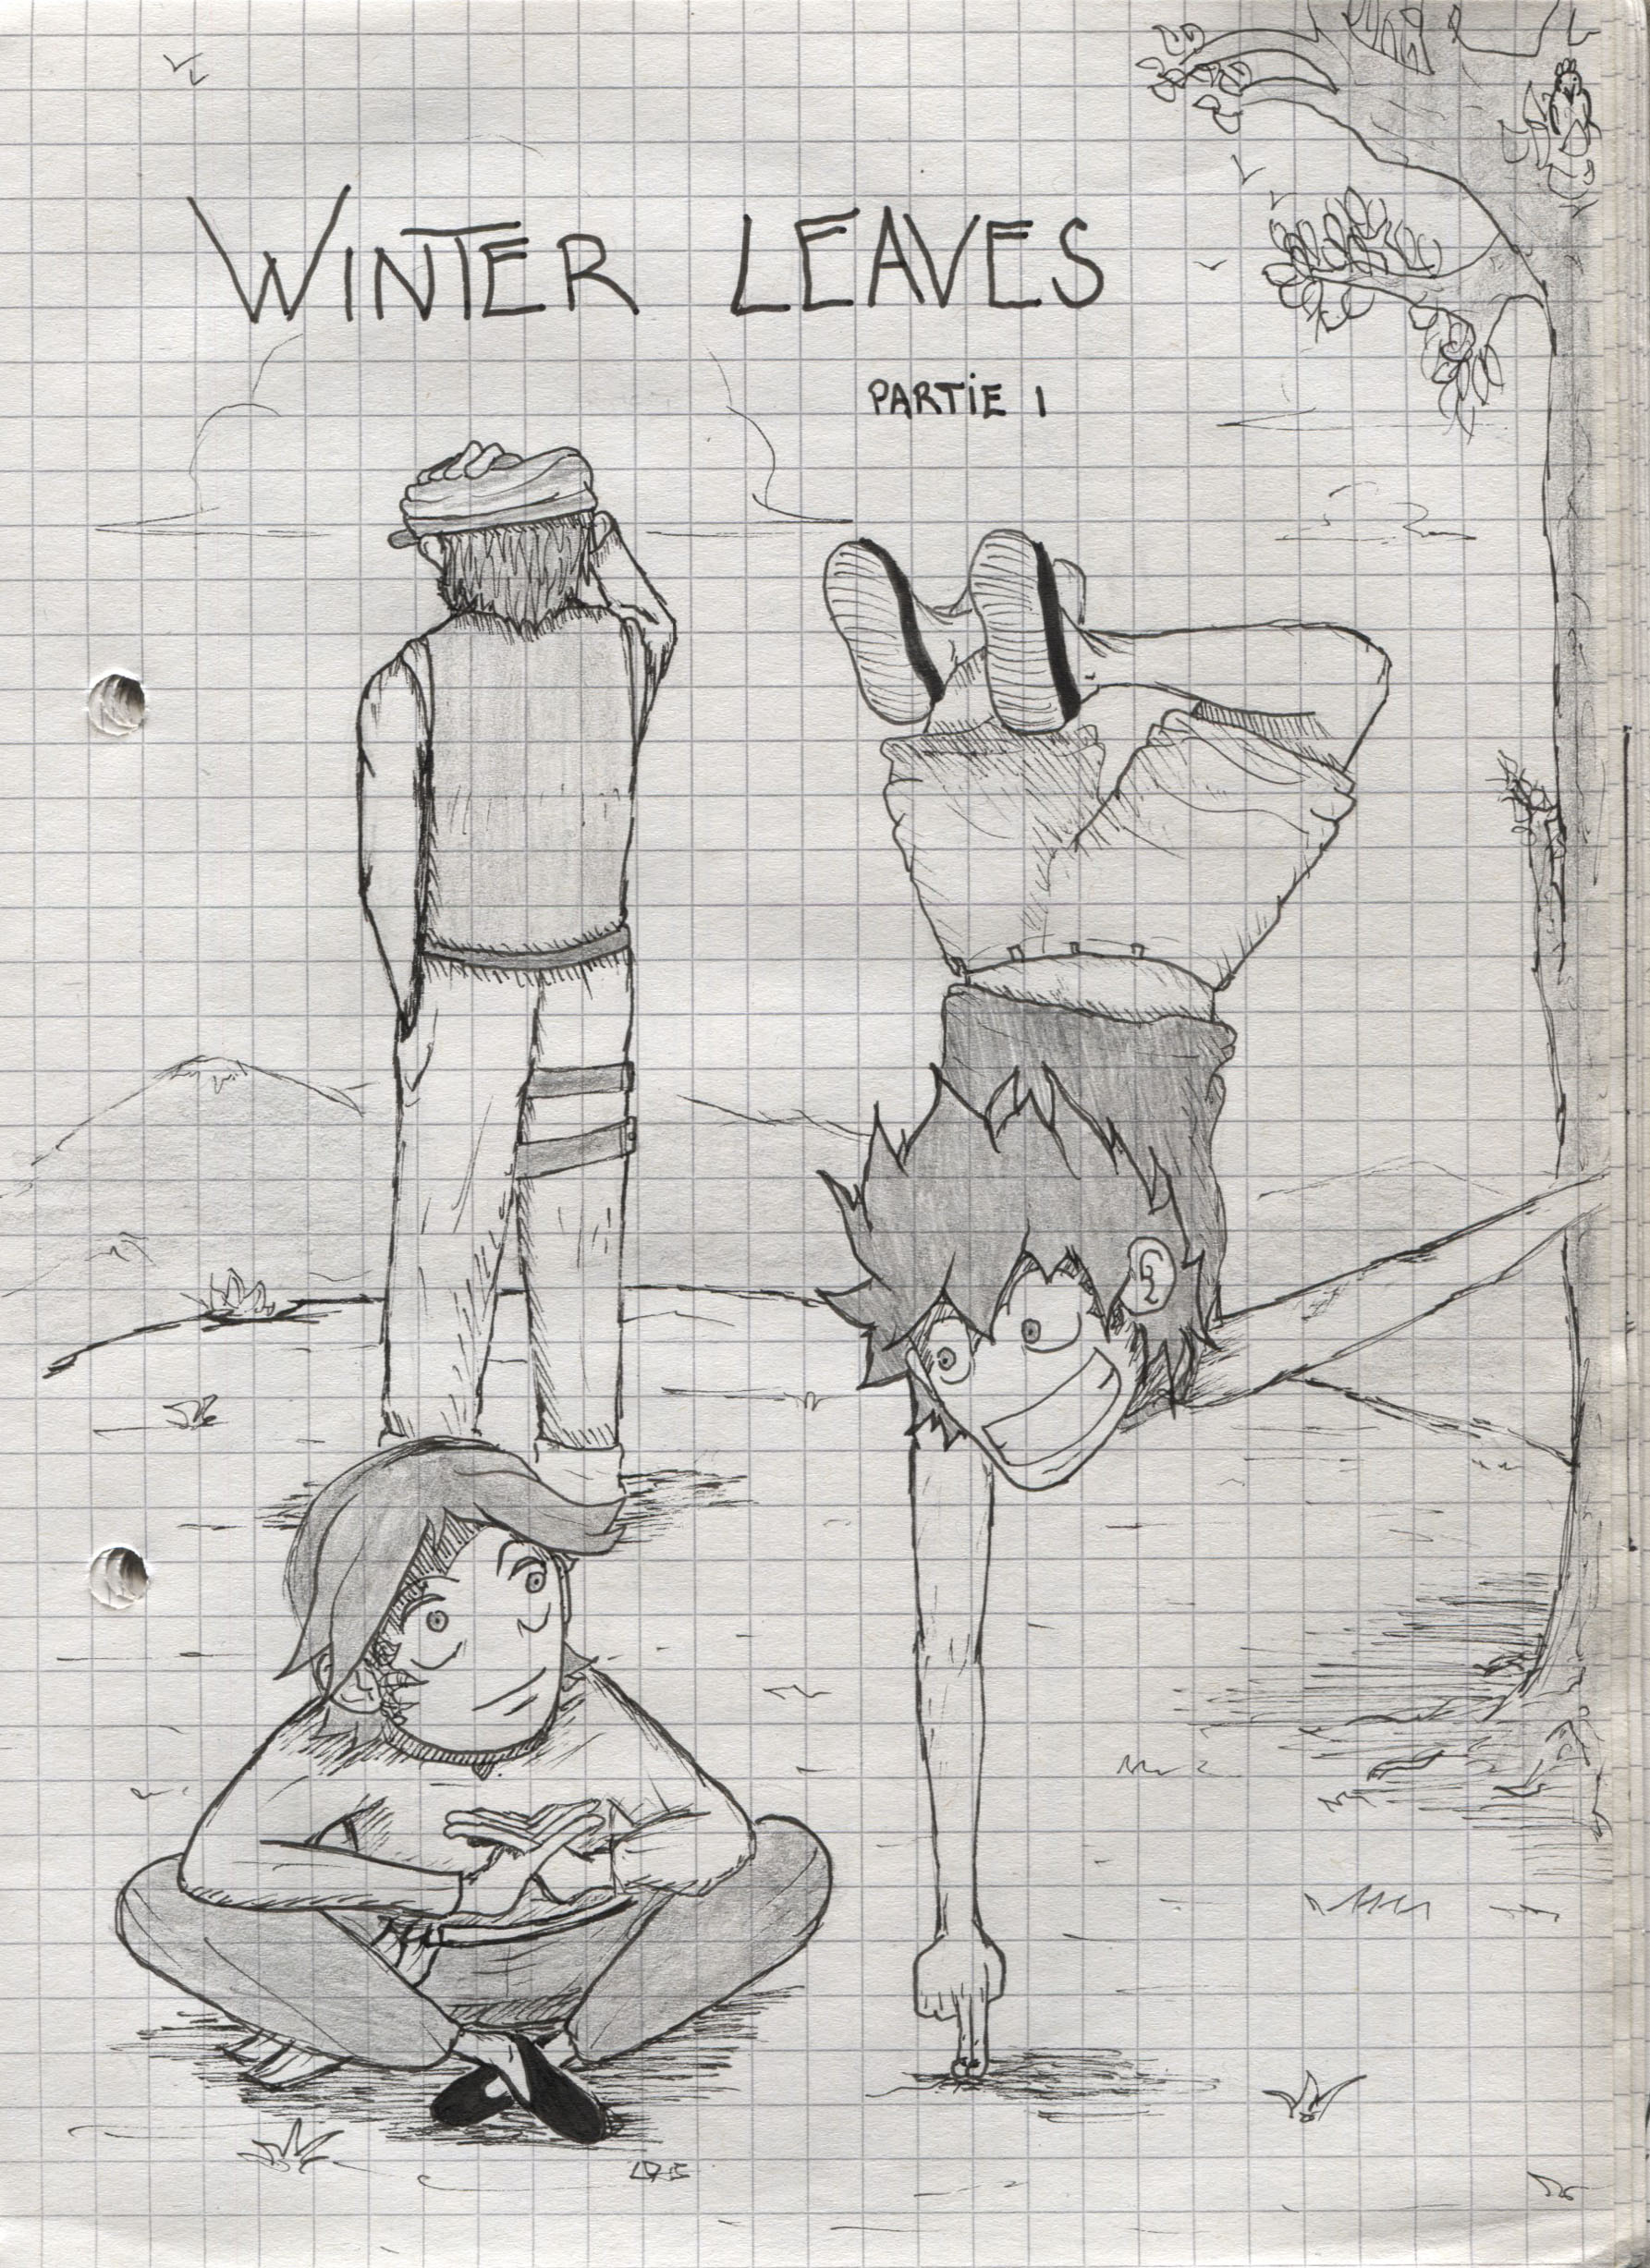 WINTER LEAVES
PARTIE 1